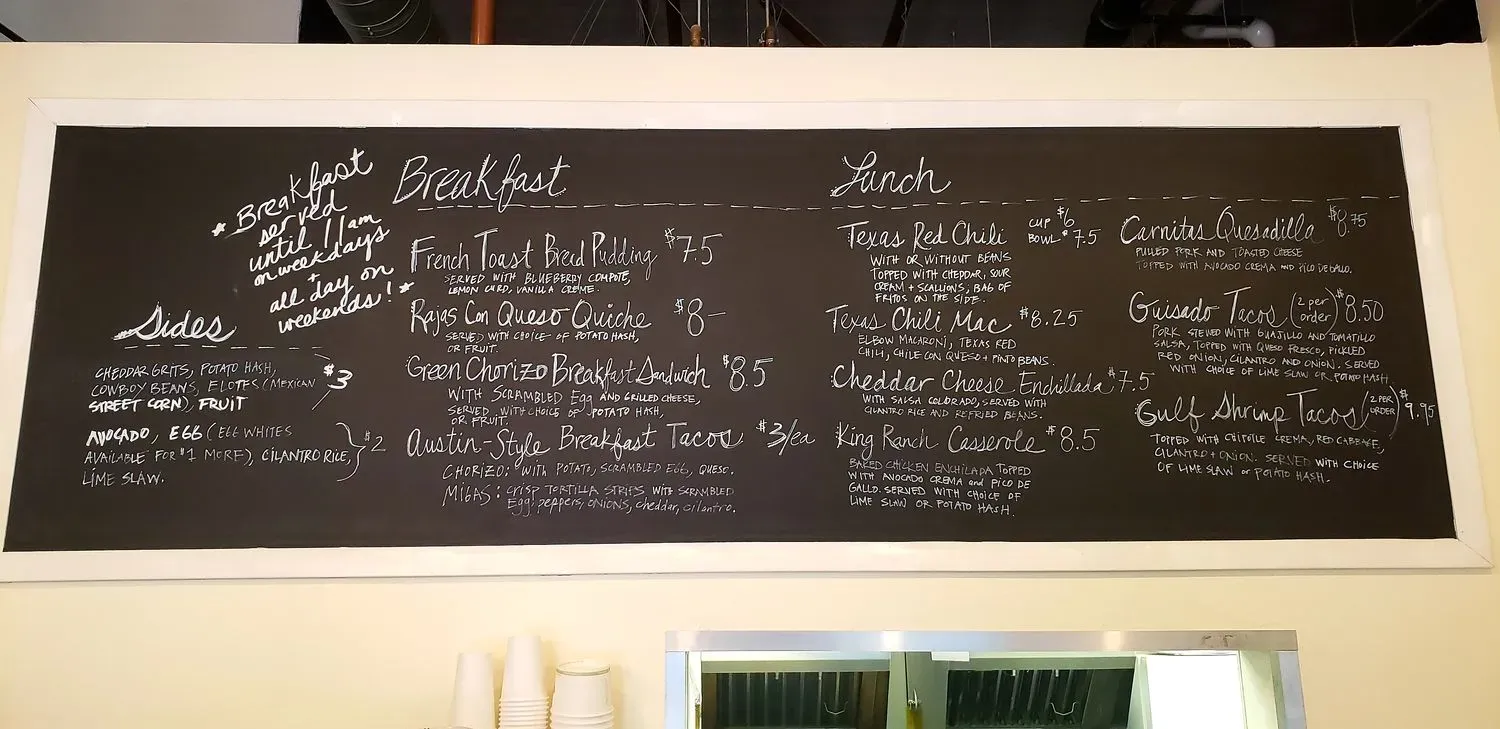 * Breakfast
served
until 11am
on weekdays
+
all day on
weekends! *
Sides
CHEDDAR GRITS, POTATO HASH,
COWBOY BEANS, ELOTES (MEXICAN
STREET CORN), FRUIT
$3
AVOCADO, EGG (EGG WHITES
AVAILABLE FOR $1 MORE), CILANTRO RICE,
LIME SLAW.
$2
Breakfast
French Toast Bread Pudding $7.5
SERVED WITH BLUEBERRY COMPOTE,
LEMON CURD, VANILLA CREME.
Rajas Con Queso Quiche $8-
SERVED WITH CHOICE OF POTATO HASH,
OR FRUIT.
Green Chorizo Breakfast Sandwich $8.5
WITH SCRAMBLED Egg AND GRILLED CHEESE,
SERVED WITH CHOICE OF POTATO HASH,
OR FRUIT.
Austin-Style Breakfast Tacos $3/ea
CHORIZO: WITH POTATO, SCRAMBLED EGG, QUESO.
MIGAS: CRISP TORTILLA STRIPS WITH SCRAMBLED
Egg, peppers, ONIONS, cheddar, cilantro.
Lunch
Texas Red Chili CUP $6
BOWL $7.5
WITH OR WITHOUT BEANS
TOPPED WITH CHEDDAR, SOUR
CREAM + SCALLIONS, BAG OF
FRITOS ON THE SIDE.
Texas Chili Mac $8.25
ELBOW MACARONI, TEXAS RED
CHILI, CHILE CON QUESO + PINTO BEANS.
Cheddar Cheese Enchillada $7.5
WITH SALSA COLORADO, SERVED WITH
CILANTRO RICE AND REFRIED BEANS.
King Ranch Casserole $8.5
BAKED CHICKEN ENCHILADA TOPPED
WITH AVOCADO CREMA and PICO DE
GALLO. SERVED WITH CHOICE OF
LIME SLAW OR POTATO HASH.
Carnitas Quesadilla $8.75
PULLED PORK AND TOASTED CHEESE
TOPPED WITH AVOCADO CREMA AND PICO DE GALLO.
Guisado Tacos (2 per order) $8.50
PORK STEWED WITH GUAJILLO AND TOMATILLO
SALSA, TOPPED WITH QUESO FRESCO, PICKLED
RED ONION, CILANTRO AND ONION. SERVED
WITH CHOICE OF LIME SLAW OR POTATO HASH
Gulf Shrimp Tacos (2 PER ORDER) $9.95
TOPPED WITH CHIPOTLE CREMA, RED CABBAGE,
CILANTRO + ONION. SERVED WITH CHOICE
OF LIME SLAW or POTATO HASH.